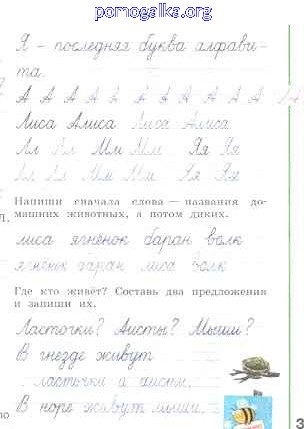 pomogalka.org
Я - последняя буква алфави-
та.
А А А А А А А А А А А
Лиса Алиса Лиса Алиса
Лл Лл Мм Мм Яя Яя
Лл Лл Мм Мм Яя Яя
Напиши сначала слова — названия до-
машних животных, а потом диких.
лиса ягнёнок баран волк
ягнёнок баран лиса волк
Где кто живёт? Составь два предложения
и запиши их.
Ласточки? Аисты? Мыши?
В гнезде живут
ласточки и аисты.
В норе живут мыши.
3